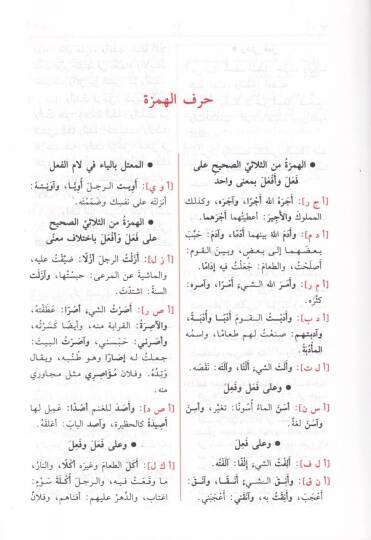 حرف الهمزة
● الهمزة من الثلاثيّ الصحيح على
فَعَلَ وأَفْعَلَ بمعنى واحد
[أ ج ر]: أجَرَهُ اللهُ أَجْرًا، وآجَرَه، وكذلك
المملوكَ والأجيرَ: أعطيتُهما أجْرَهما.
[أ د م]: وأدَمَ اللهُ بينهما أدْمًا، وآدَمَ: حَبَّبَ
بعضَهما إلى بعضٍ، وبينَ القوم:
أصلَحْتُ، والطعامَ: جَعَلْتُ فيه إدَامًا.
[أ م ر]: وأمَرَ الله الشيءَ أمْرًا، وآمره:
كثَّره.
[أ د ب]: وأدَبْتُ القومَ أدْبًا وأُدْبةً،
وآدبتهم: صنعتُ لهم طعامًا، واسمه
المأْدُبَةُ.
[أ ل ت]: وألَتَ الشيءَ ألْتًا، وآلَتَه: نَقَصَه.
● وعلى فَعَلَ وفَعِلَ
[أ س ن]: أسَنَ الماءُ أُسُونًا: تغيَّر، وأسِنَ
وآسَنَ لغةٌ.
● وعلى فَعِلَ
[أ ل ف]: ألِفْتُ الشيءَ إلْفًا: آلَفْتُه.
[أ ن ق]: وأنِقَ الشيءُ أنَقًا، وآنَقَ:
أعْجَبَ، وأنِقْتُ به، وآنَقَني: أعْجَبَني.
● المعتل بالياء في لام الفعل
[أ و ي]: أَوَيت الرجلَ أُوِيًّا، وآوَيْتُهُ:
أنزلتَه على نفسَك وضمَمْتَه.
● الهمزة من الثلاثيّ الصحيح
على فَعَلَ وأفْعَلَ باختلاف معنًى
[أ ز ل]: أَزَلْتُ الرجلَ أَزْلًا: ضيَّقْتُ عليه،
والماشيةَ عن المرعى: حبستُها، وآزَلَت
السنةُ: اشتدّت.
[أ ص ر]: أصَرْتُ الشيءَ أصْرًا: عَطَفْتُهُ،
والآصِرَةُ: القرابة منه، وأيضًا كَسَرْتُه،
وأصَرَني: حَبَسني، وآصَرْتُ البيتَ:
جعلتُ له إصَارًا وهو طُنُبه، ويقال
وَتِدُهُ. وفلان مُؤاصِري مثل مجاوري
منه.
[أ ص د]: وأصَدَ للغنمِ أصْدًا: عَمِلَ لها
أصِيدَةً كالحظيرة، وآصد البابَ: أغلقَهُ.
● وعلى فَعَلَ وفَعِلَ
[أ ك ل]: أكَلَ الطعامَ وغيرَه أكْلًا، والنارُ،
ما وقعَتْ فيه، والرجلَ أُكْلَةَ سُوءٍ:
اغتاب، والدَّهرُ عليهم: أفناهم، وفلانٌ